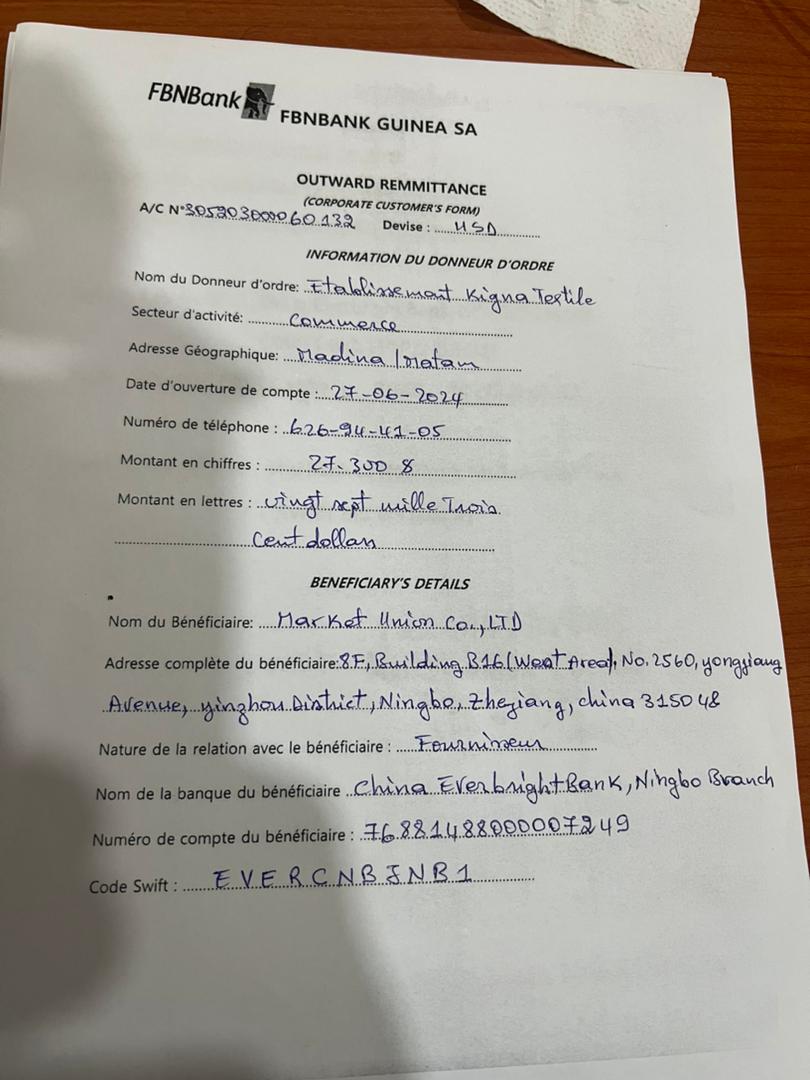 FBNBank
FBNBANK GUINEA SA
OUTWARD REMMITTANCE
(CORPORATE CUSTOMER'S FORM)
A/C N°3059203000060132 Devise : USD
INFORMATION DU DONNEUR D'ORDRE
Nom du Donneur d'ordre: Etablissement Kigna Textile
Secteur d'activité: Commerce
Adresse Géographique: Madina / Matam
Date d'ouverture de compte : 27-06-2024
Numéro de téléphone : 626-94-41-05
Montant en chiffres : 27.300 $
Montant en lettres : vingt sept mille Trois
Cent dollars
BENEFICIARY'S DETAILS
Nom du Bénéficiaire: Market Union Co., LTD
Adresse complète du bénéficiaire: 8F, Building B16 (West Area), No. 2560, yongjiang
Avenue, yinzhou District, Ningbo, Zhejiang, china 315048
Nature de la relation avec le bénéficiaire : Fournisseur
Nom de la banque du bénéficiaire China Everbright Bank, Ningbo Branch
Numéro de compte du bénéficiaire : 76881488000007249
Code Swift : EVERCNBJNB1